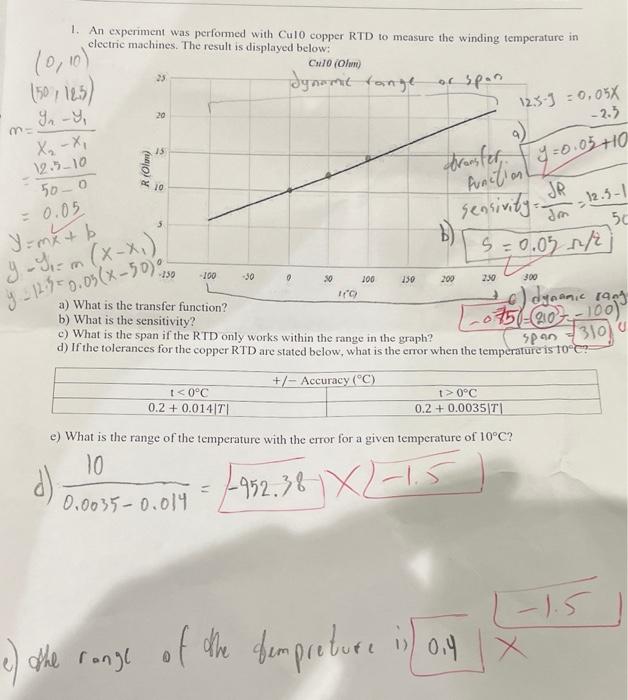 1. An experiment was performed with Cu10 copper RTD to measure the winding temperature in
electric machines. The result is displayed below:
Cu10 (Ohm)
dynamic range or span
(0,10)
(50,12.5)
m = y₂-y₁
x₂-x₁
= 12.5-10
50-0
= 0.05
y=mx+b
y-y₁=m(x-x₁)
y-12.5=0.05(x-50)
R (Ohm)
25
20
15
10
5
0
-150 -100 -50 0 50 100 150 200 250 300
t (°C)
12.5-y = 0,05x
-2.5
a)
transfer
function
y=0.05+10
sensivity = dR
dm
= 12.5-1
50
b) S = 0.05 Ω/
c) dynamic rang
-0.75
(210 - -100)
span = 310
a) What is the transfer function?
b) What is the sensitivity?
c) What is the span if the RTD only works within the range in the graph?
d) If the tolerances for the copper RTD are stated below, what is the error when the temperature is 10°C?
+/- Accuracy (°C)
t < 0°C t > 0°C
0.2 + 0.014|T| 0.2 + 0.0035|T|
e) What is the range of the temperature with the error for a given temperature of 10°C?
d) 10
0.0035 - 0.014
= -952.38 X -1.5
-1.5
e) the range of the tempreture is 0,4 X